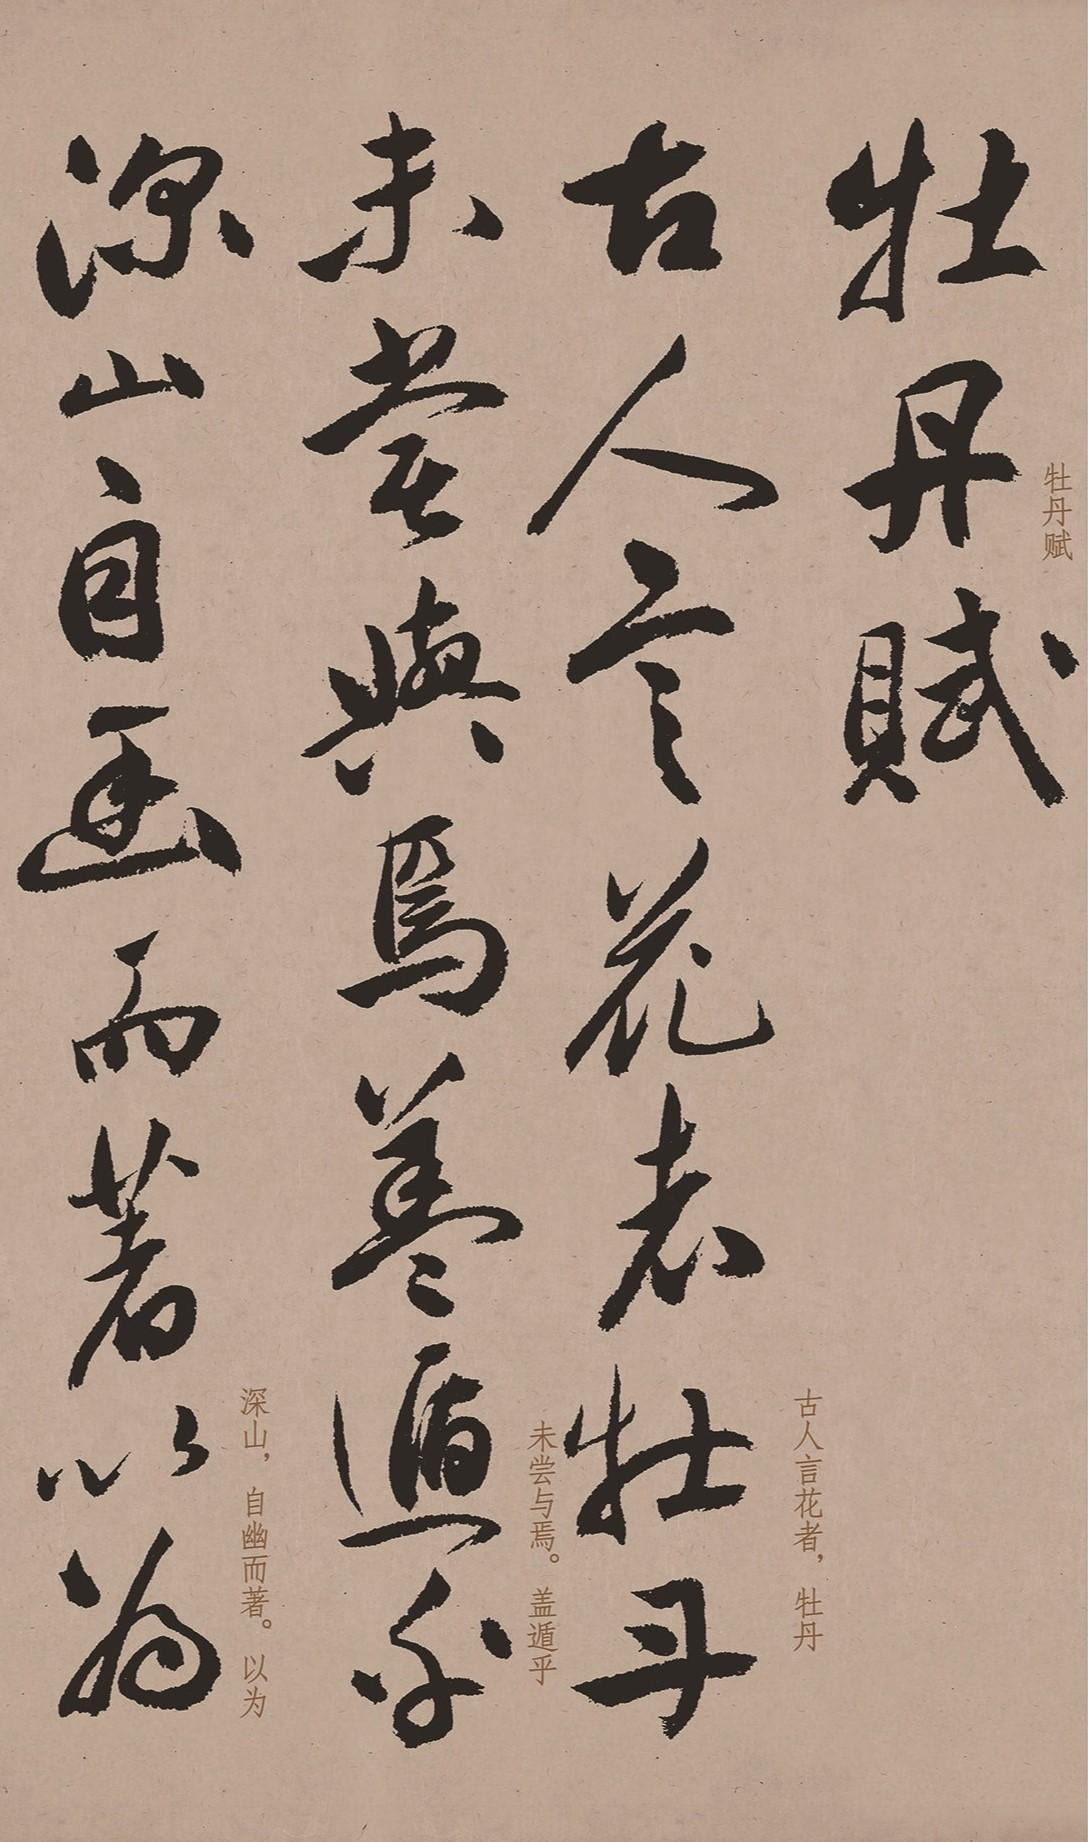 牡丹賦
牡丹赋
古人言花者牡丹
古人言花者，牡丹
未嘗與焉蓋遁乎
未尝与焉。盖遁乎
深山自幽而著以為
深山，自幽而著。以为